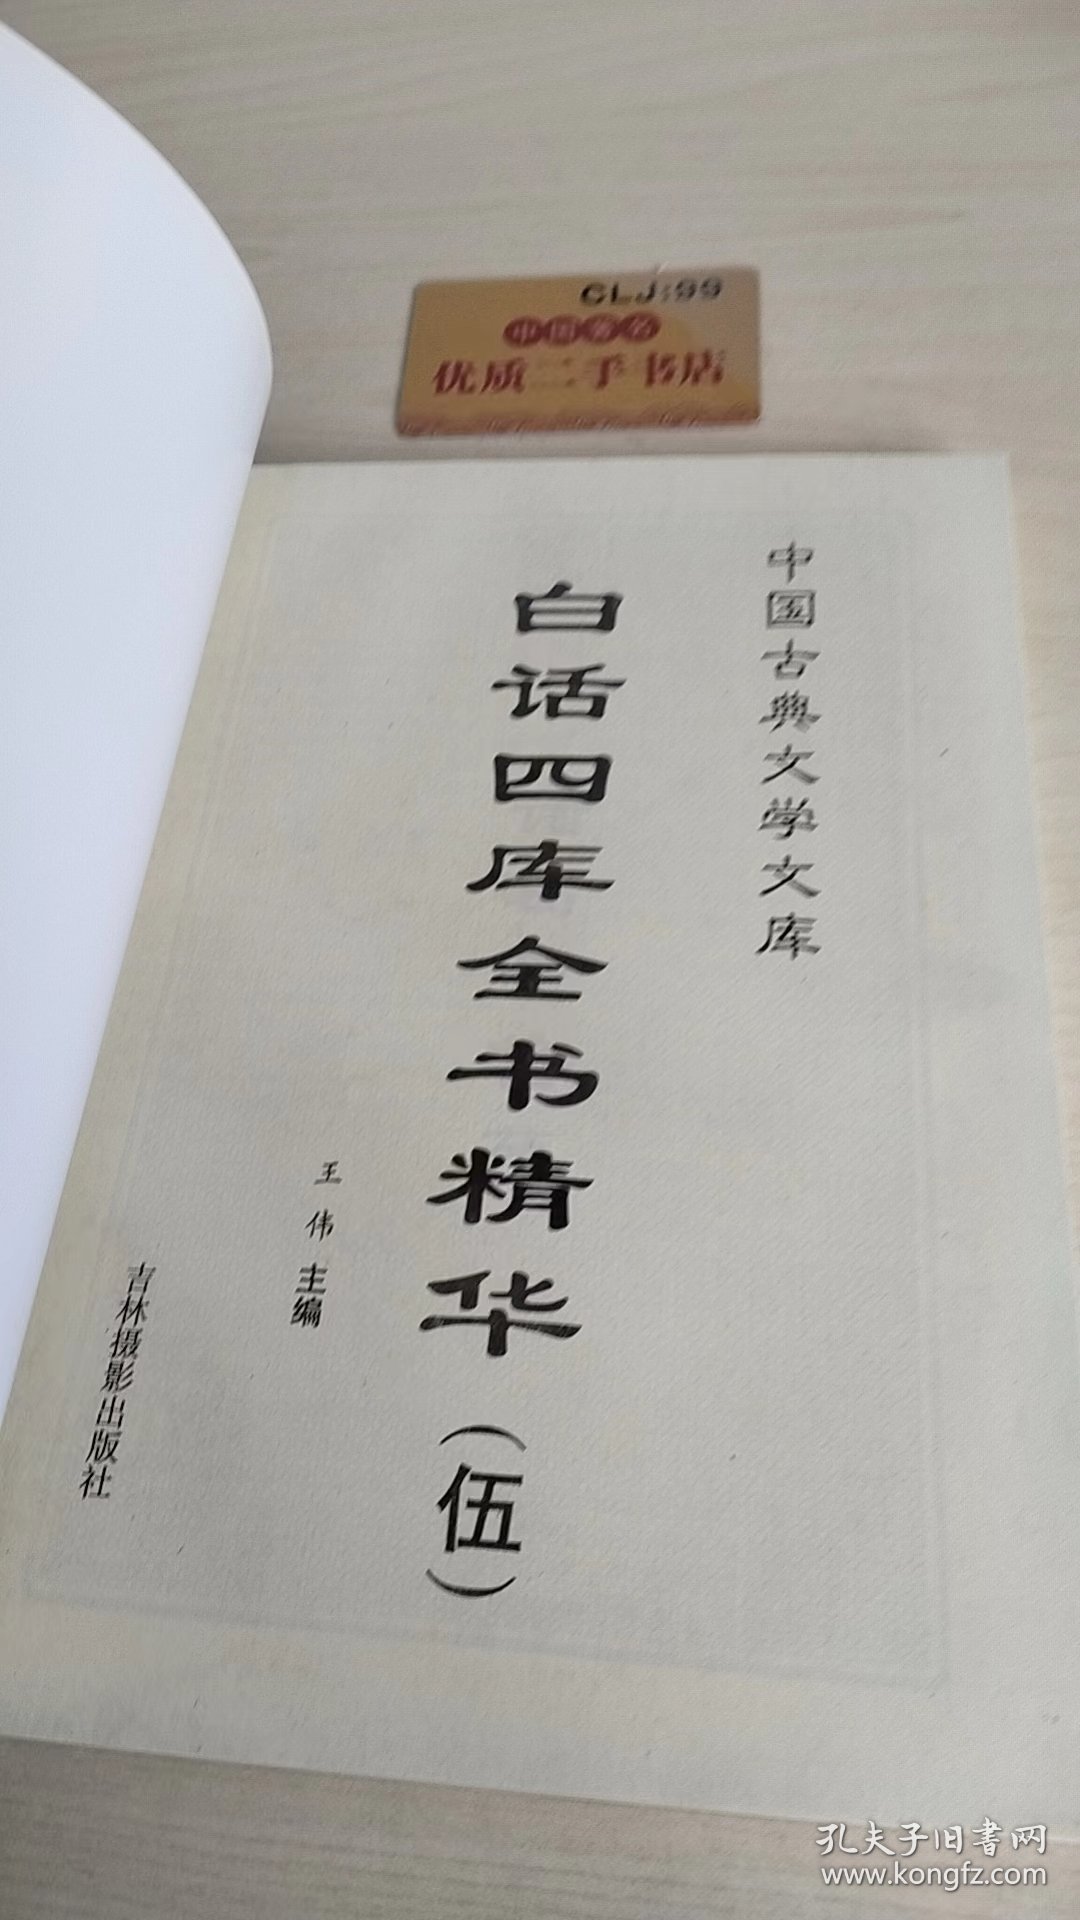 CLJ:99
中国著名
优质二手书店
中国古典文学文库
白话四库全书精华(伍)
王伟主编
吉林摄影出版社
孔夫子旧書网
www.kongfz.com